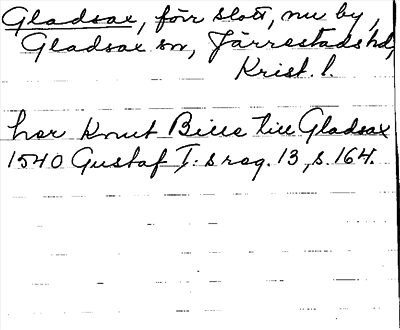 Gladsax, förr slott, nu by,
Gladsax sn, Järrestads hd,
Krist. l.
her Knut Bille till Gladsax
1540 Gustaf I:s reg. 13, s. 164.